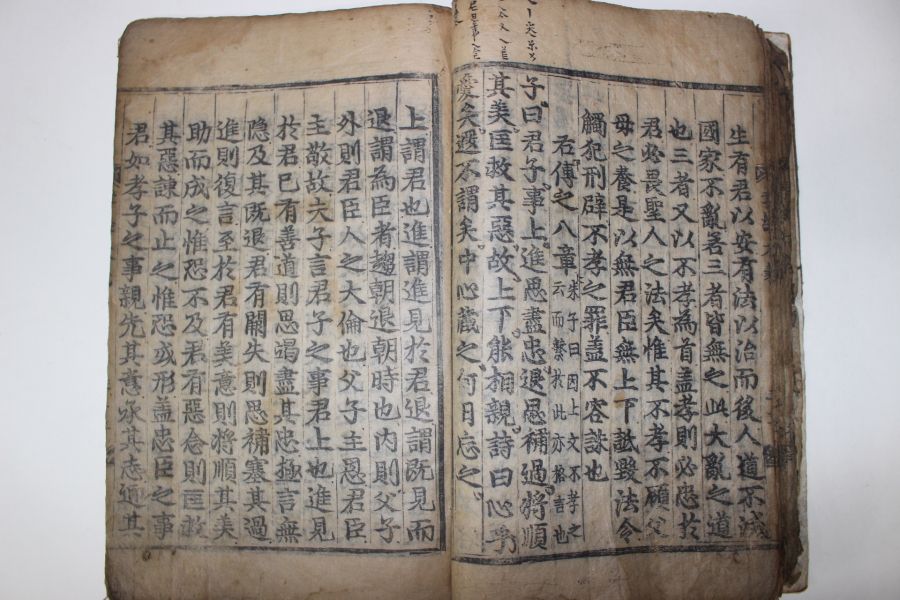 生有君以安有法以治而後人道不滅
國家不亂若三者皆無之此大亂之道
也三者又以不孝為首盖孝則必忠於
君必畏聖人之法矣惟其不孝不顧父
母之養是以無君臣無上下詆毀法令
觸犯刑辟不孝之罪盖不容誅也
右傳之八章
朱子曰因上文不孝之
云而繫於此亦格言也
子曰君子事上進思盡忠退思補過將順
其美匡救其惡故上下能相親詩曰心乎
愛矣遐不謂矣中心藏之何日忘之
上謂君也進謂進見於君退謂既見而
退謂為臣者趨朝退朝時也內則父子
外則君臣人之大倫也父子主恩君臣
主敬故夫子言君子之事君上也進見
於君已有善道則思竭盡其忠極言無
隱及其既退君有闕失則思補塞其過
進則復言至於君有美意則將順其美
助而成之惟恐不及君有惡念則匡救
其惡諫而止之惟恐或形盖忠臣之事
君如孝子之事親先其意承其志通其